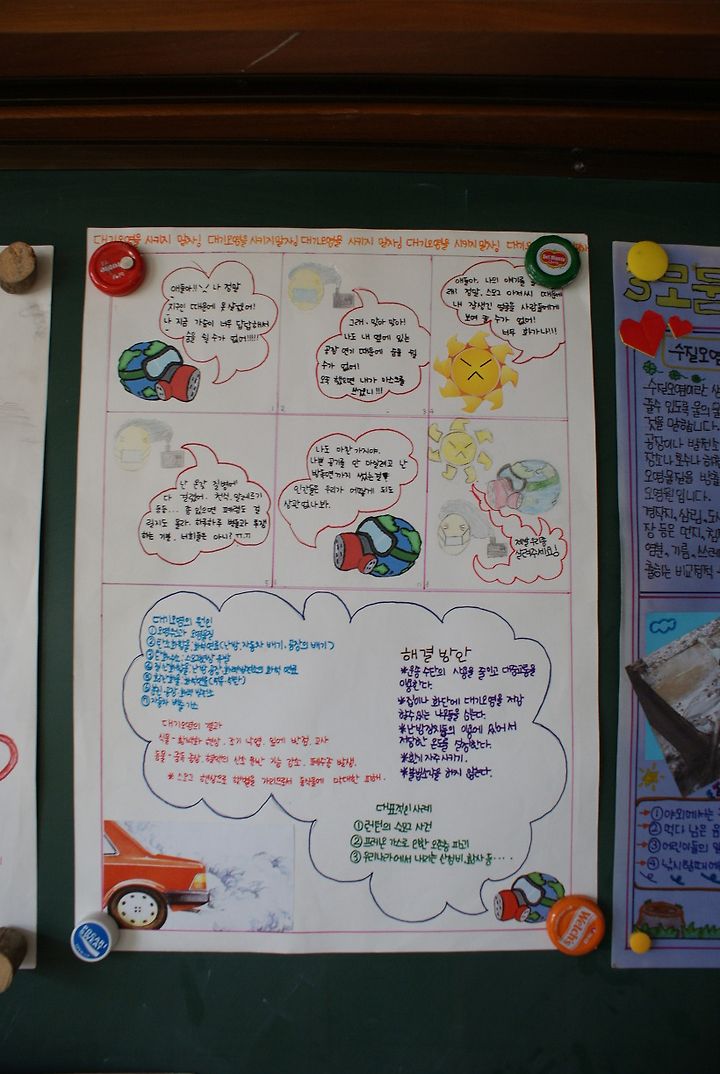 대기오염을 시키지 말자! 대기오염을 시키지 말자! 대기오염을 시키지 말자! 대기오염을 시키지 말자! 대기오염을
애들아!! 나 정말
지긴 때문에 못살겠어!
나 지금 가슴이 너무 답답해서
숨을 쉴 수가 없어!!!!!
그래, 맞아 맞아!
나도 내 옆에 있는
공장 연기 때문에 숨을 쉴
수가 없어!
오죽 했으면 내가 마스크를
쓰겠니!!!
애들아, 나의 얘기를
래! 정말, 스모그 아저씨 때문에
내 잘생긴 얼굴을 사람들에게
보여 줄 수가 없어!
너무 화가나!!!
난 온갖 질병에
다 걸렸어. 천식, 알레르기
등등... 좀 있으면 폐렴도 걸
릴지도 몰라. 하루하루 병들과 투쟁
하는 기분, 너희들은 아니? ㅠ.ㅠ
나도 마찬가지야.
나쁜 공기를 안 마실려고 난
방독면까지 썼는걸
인간들은 우리가 어떻게 되도
상관없나봐.
제발 우리좀
살려주세요!
대기오염의 원인
① 오염원과 오염물질
② 탄소화합물: 화석연료(난방, 자동차 배기, 공장의 배기)
⑦ 자동차 배출 가스
대기오염의 결과
식물 - 황백화 현상, 조기 낙엽, 잎에 반점, 고사
동물 - 혈액의 산소 운반 기능 감소, 폐수종 발생.
* 스모그 현상으로 햇볕을 가리므로 동식물에 막대한 피해.
해결 방안
*운송 수단의 사용을 줄이고 대중교통을
이용한다.
*집이나 화단에 대기오염을 저감
할수 있는 나무들을 심는다.
*난방장치들의 이용에 있어서
적당한 온도를 설정한다.
*환기 자주시키기.
*불법소각을 하지 않는다.
대표적인 사례
① 런던의 스모그 사건
② 프레온 가스로 인한 오존층 파괴
③ 우리나라에서 내리는 산성비, 황사 등....
Del Monte
Welch's
5모둠
수질오염
수질오염이란
줄수 있도록 물의
것을 말합니다.
오염될 됩니다.
경작지, 삼림, 도시
장 등은 먼지, 침전
염분, 기름, 쓰레
출하는 비교적적
① 야외에서는
② 먹다 남은 음
③ 어린이들의
④ 낚시할때에